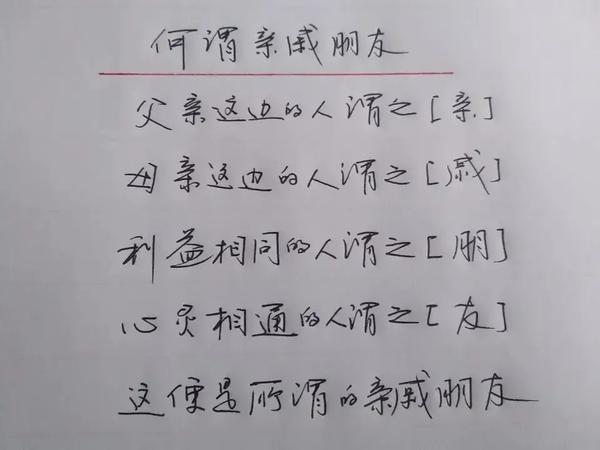 何谓亲戚朋友
父亲这边的人谓之[亲]
母亲这边的人谓之[戚]
利益相同的人谓之[朋]
心灵相通的人谓之[友]
这便是所谓的亲戚朋友